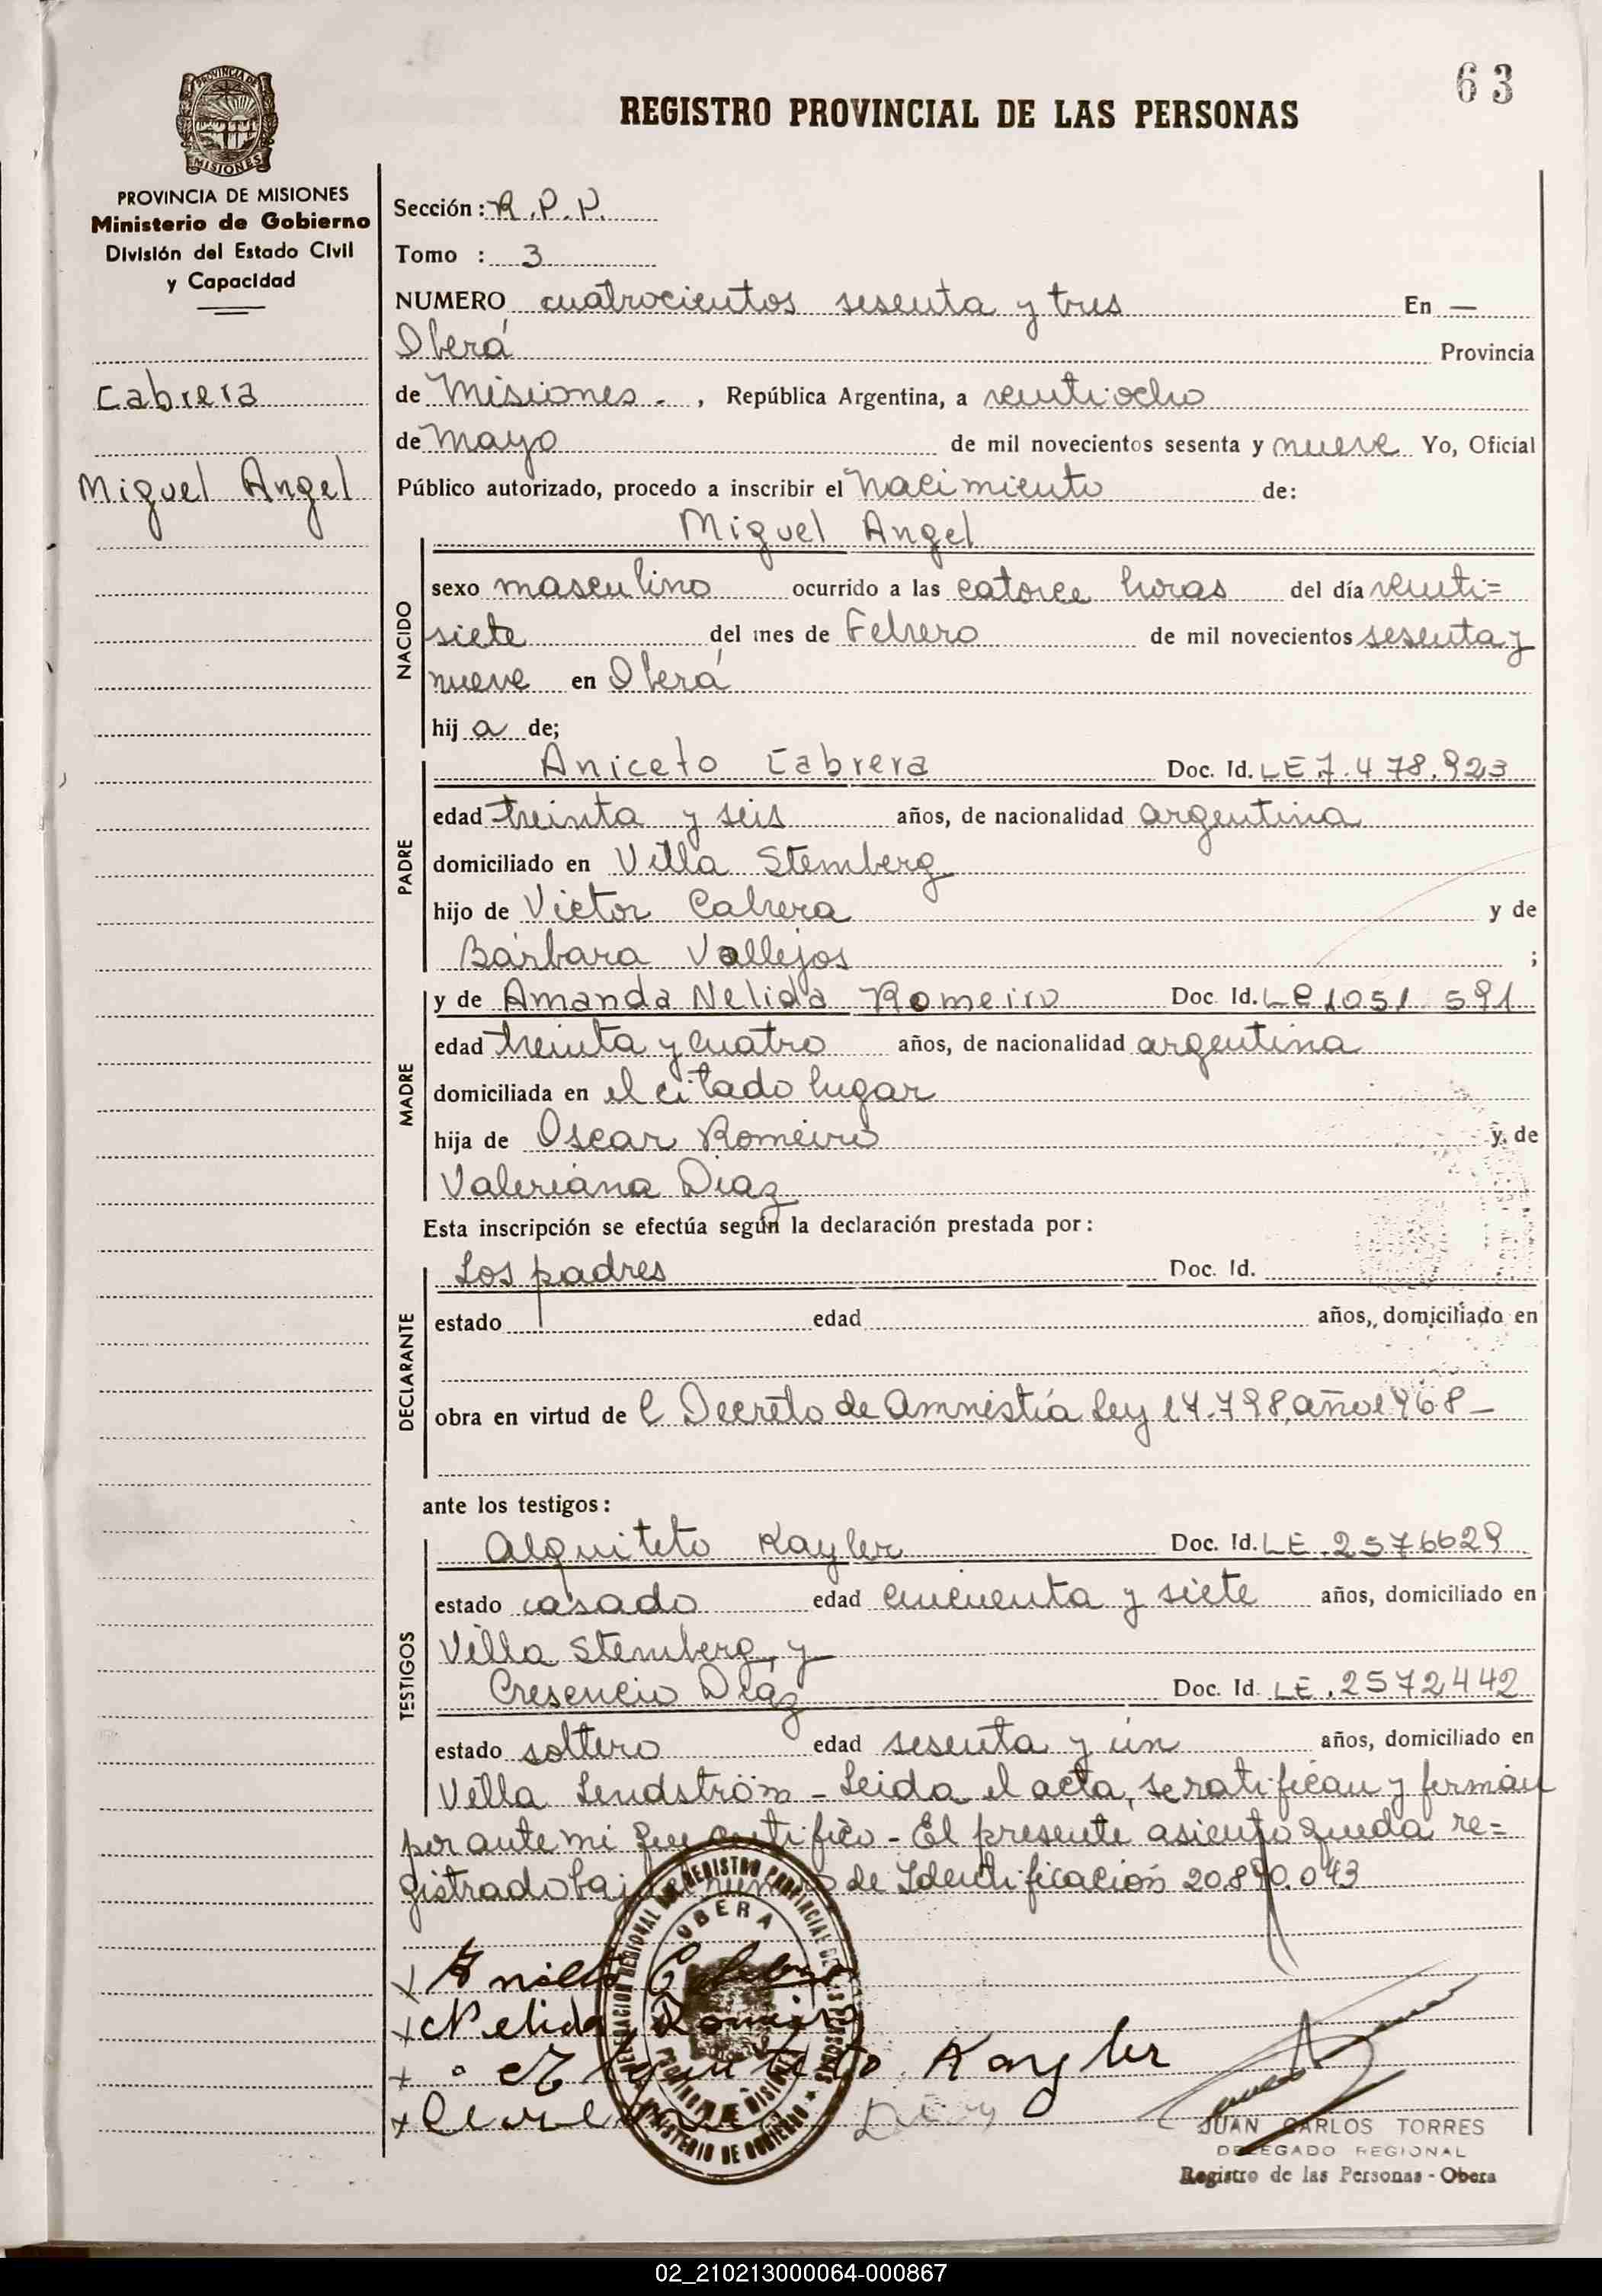 63
PROVINCIA DE
MISIONES
REGISTRO PROVINCIAL DE LAS PERSONAS
PROVINCIA DE MISIONES
Ministerio de Gobierno
División del Estado Civil
y Capacidad
Cabrera
Miguel Angel
Sección: R.P.P.
Tomo : 3
NUMERO cuatrocientos sesenta y tres En —
Oberá Provincia
de Misiones - , República Argentina, a veintiocho
de Mayo de mil novecientos sesenta y nueve Yo, Oficial
Público autorizado, procedo a inscribir el Nacimiento de:
Miguel Angel
NACIDO
sexo masculino ocurrido a las catorce horas del día veinti=
siete del mes de Febrero de mil novecientos sesenta y
nueve en Oberá
hij a de;
PADRE
Aniceto Cabrera Doc. Id. LE 7.478.923
edad treinta y seis años, de nacionalidad argentina
domiciliado en Villa Stemberg
hijo de Victor Cabrera y de
Bárbara Vallejos ;
MADRE
y de Amanda Nelida Romeiro Doc. Id. LC 1051 591
edad treinta y cuatro años, de nacionalidad argentina
domiciliada en el citado lugar
hija de Oscar Romeiro y de
Valeriana Diaz
Esta inscripción se efectúa según la declaración prestada por:
DECLARANTE
Los padres Doc. Id.
estado edad años, domiciliado en
obra en virtud de Decreto de Amnistía Ley 17.798, año 1968 -
ante los testigos:
TESTIGOS
Alquiteto Kayler Doc. Id. LE. 2576629
estado casado edad cincuenta y siete años, domiciliado en
Villa Stemberg, y
Cresencio Diaz Doc. Id. LE. 2572442
estado soltero edad sesenta y un años, domiciliado en
Villa Lendström - Leida el acta, se ratifican y firman
por ante mi que certifico - El presente asiento queda re=
gistrado bajo el número de Identificación 20.890.043
DELEGACION REGIONAL DEL REGISTRO PROVINCIAL DE LAS PERSONAS
OBERA
PROVINCIA DE MISIONES
MINISTERIO DE GOBIERNO
x Cabrera
x Nelida Romeiro
x Kayler
x Diaz
JUAN CARLOS TORRES
DELEGADO REGIONAL
Registro de las Personas - Obera
02_210213000064-000867